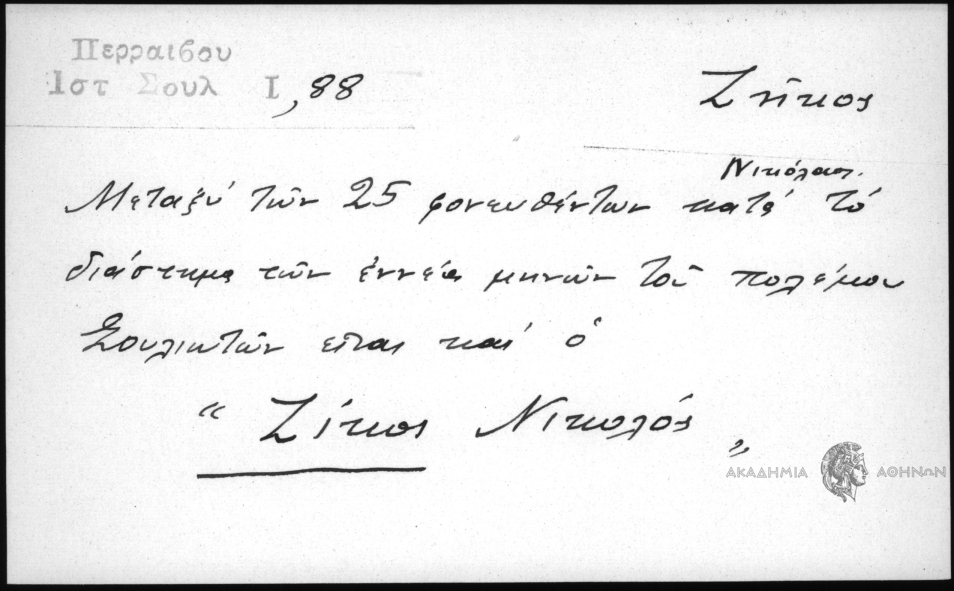 Περραιβου
Ιστ Σουλ Ι, 88
Ζήκος
Νικόλαος.
Μεταξύ τῶν 25 φονευθέντων κατά τό
διάστημα τῶν ἐννέα μηνῶν τοῦ πολέμου
Σουλιωτῶν εἶναι καί ὁ
“ Ζίκος Νικολός „
ΑΚΑΔΗΜΙΑ ΑΘΗΝΩΝ